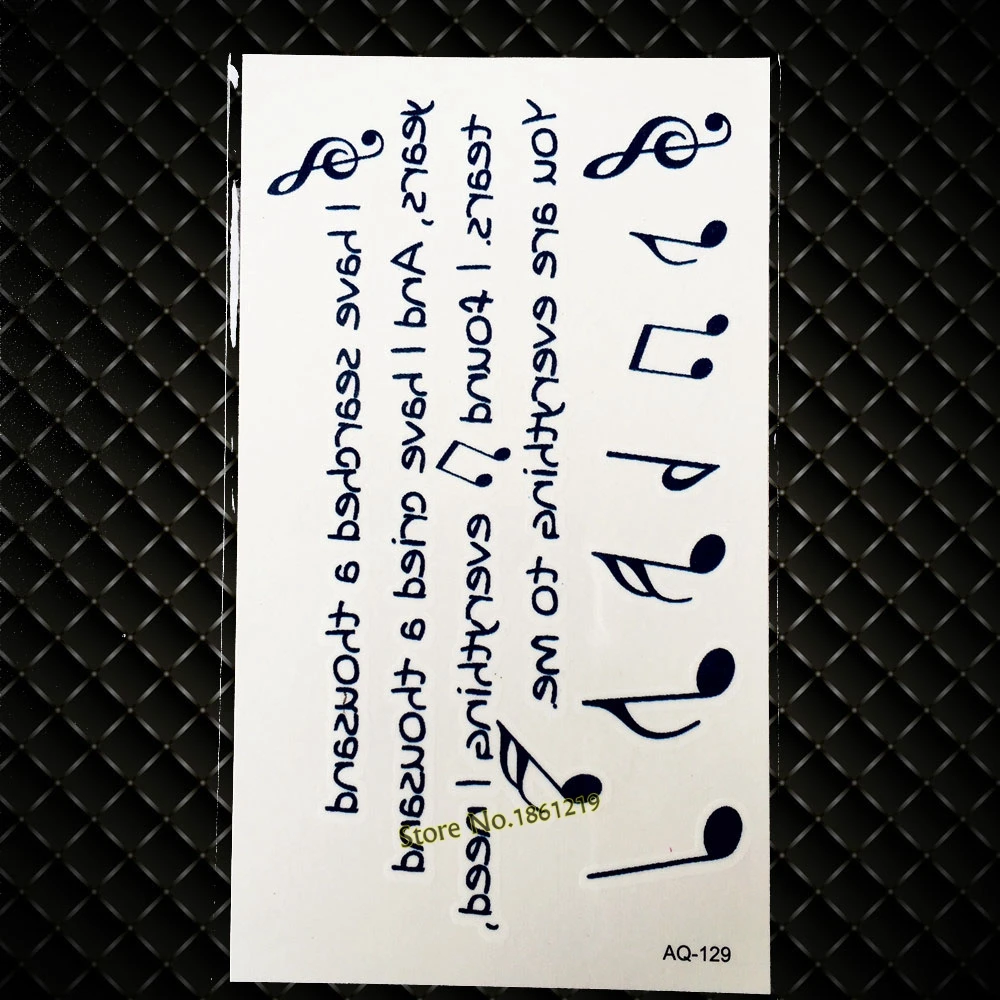 I have searched a thousand
years, And I have cried a thousand
tears. I found everything I need,
You are everything to me.
Store No.1861219
AQ-129